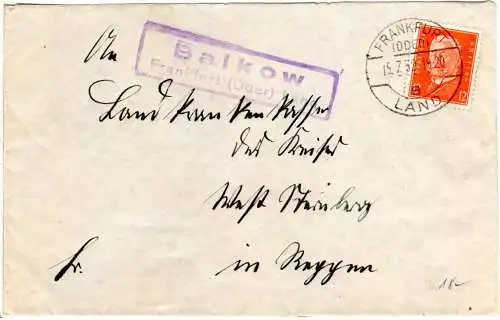 An
Balkow
Frankfurt (Oder) Land
FRANKFURT
(ODER)
LAND
12
Landkrankenkasse
des Kreises
West Sternberg
in Reppen
fr.
18-